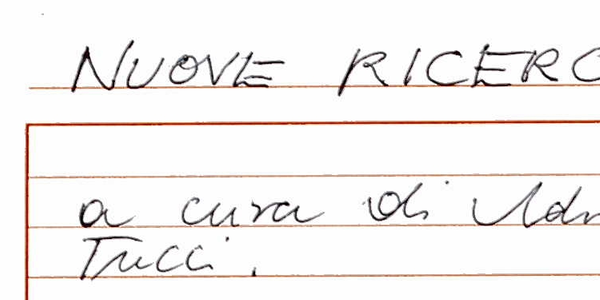 NUOVE RICERC
a cura di
Tucci.